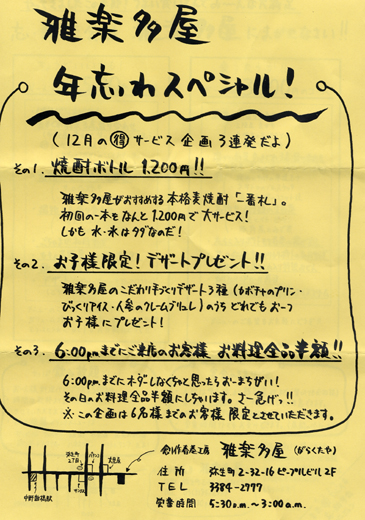 雅楽多屋
年忘れスペシャル!
(12月の㊝サービス企画3連発だよ)
その1. 焼酎ボトル 1,200円!!
雅楽多屋がおすすめする本格麦焼酎「一番札」。
初回の一本をなんと1,200円で大サービス!
しかも 水・氷はタダなのだ!
その2. お子様限定!デザートプレゼント!!
雅楽多屋のこだわり手づくりデザート3種(カボチャのプリン・
びっくりアイス・人参のクレームブリュレ)のうち どれでもお一つ
お子様にプレゼント!
その3. 6:00pmまでにご来店のお客様 お料理全品半額!!
6:00pmまでに
その日のお料理全品半額にしちゃいます。さー急げっ!!
※この企画は6名様までのお客様限定とさせていただきます。
創作居酒屋工房 雅楽多屋(がらくたや)
住所 弥生町2-32-16 ピープルビル2F
TEL 3384-2797
営業時間 5:30p.m.~3:00a.m.
中野新橋駅